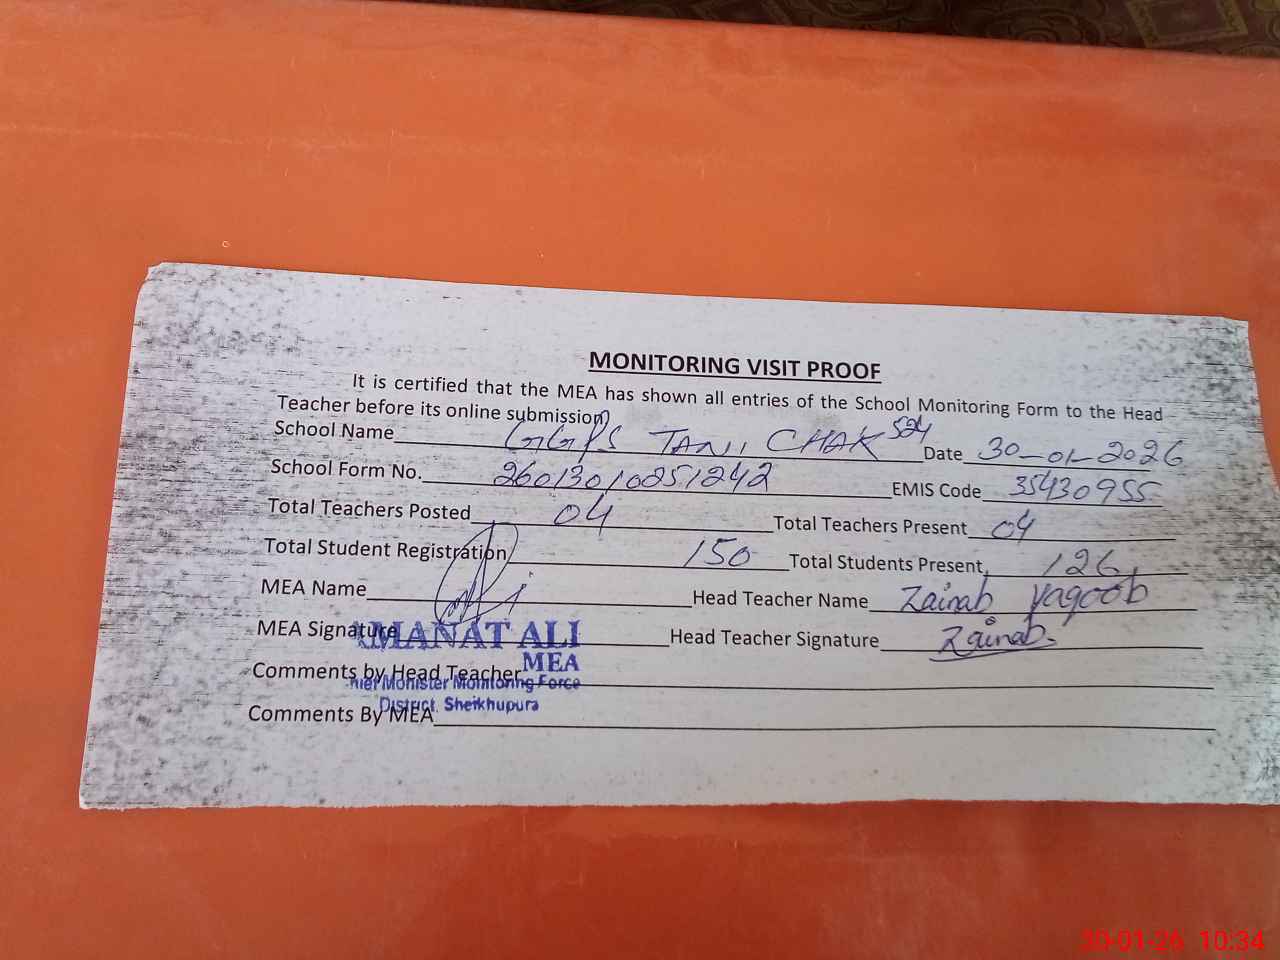 MONITORING VISIT PROOF
It is certified that the MEA has shown all entries of the School Monitoring Form to the Head
Teacher before its online submission
School Name GGPS TANI CHAK 524 Date 30-01-2026
School Form No. 26013010251242 EMIS Code 35430955
Total Teachers Posted 04 Total Teachers Present 04
Total Student Registration 150 Total Students Present 126
MEA Name Head Teacher Name Zainab Yaqoob
MEA Signature Head Teacher Signature Zainab.
AMANAT ALI
MEA
Comments by Head Teacher
hief Monister Monitoring Force
District. Sheikhupura
Comments By MEA
30-01-26 10:34